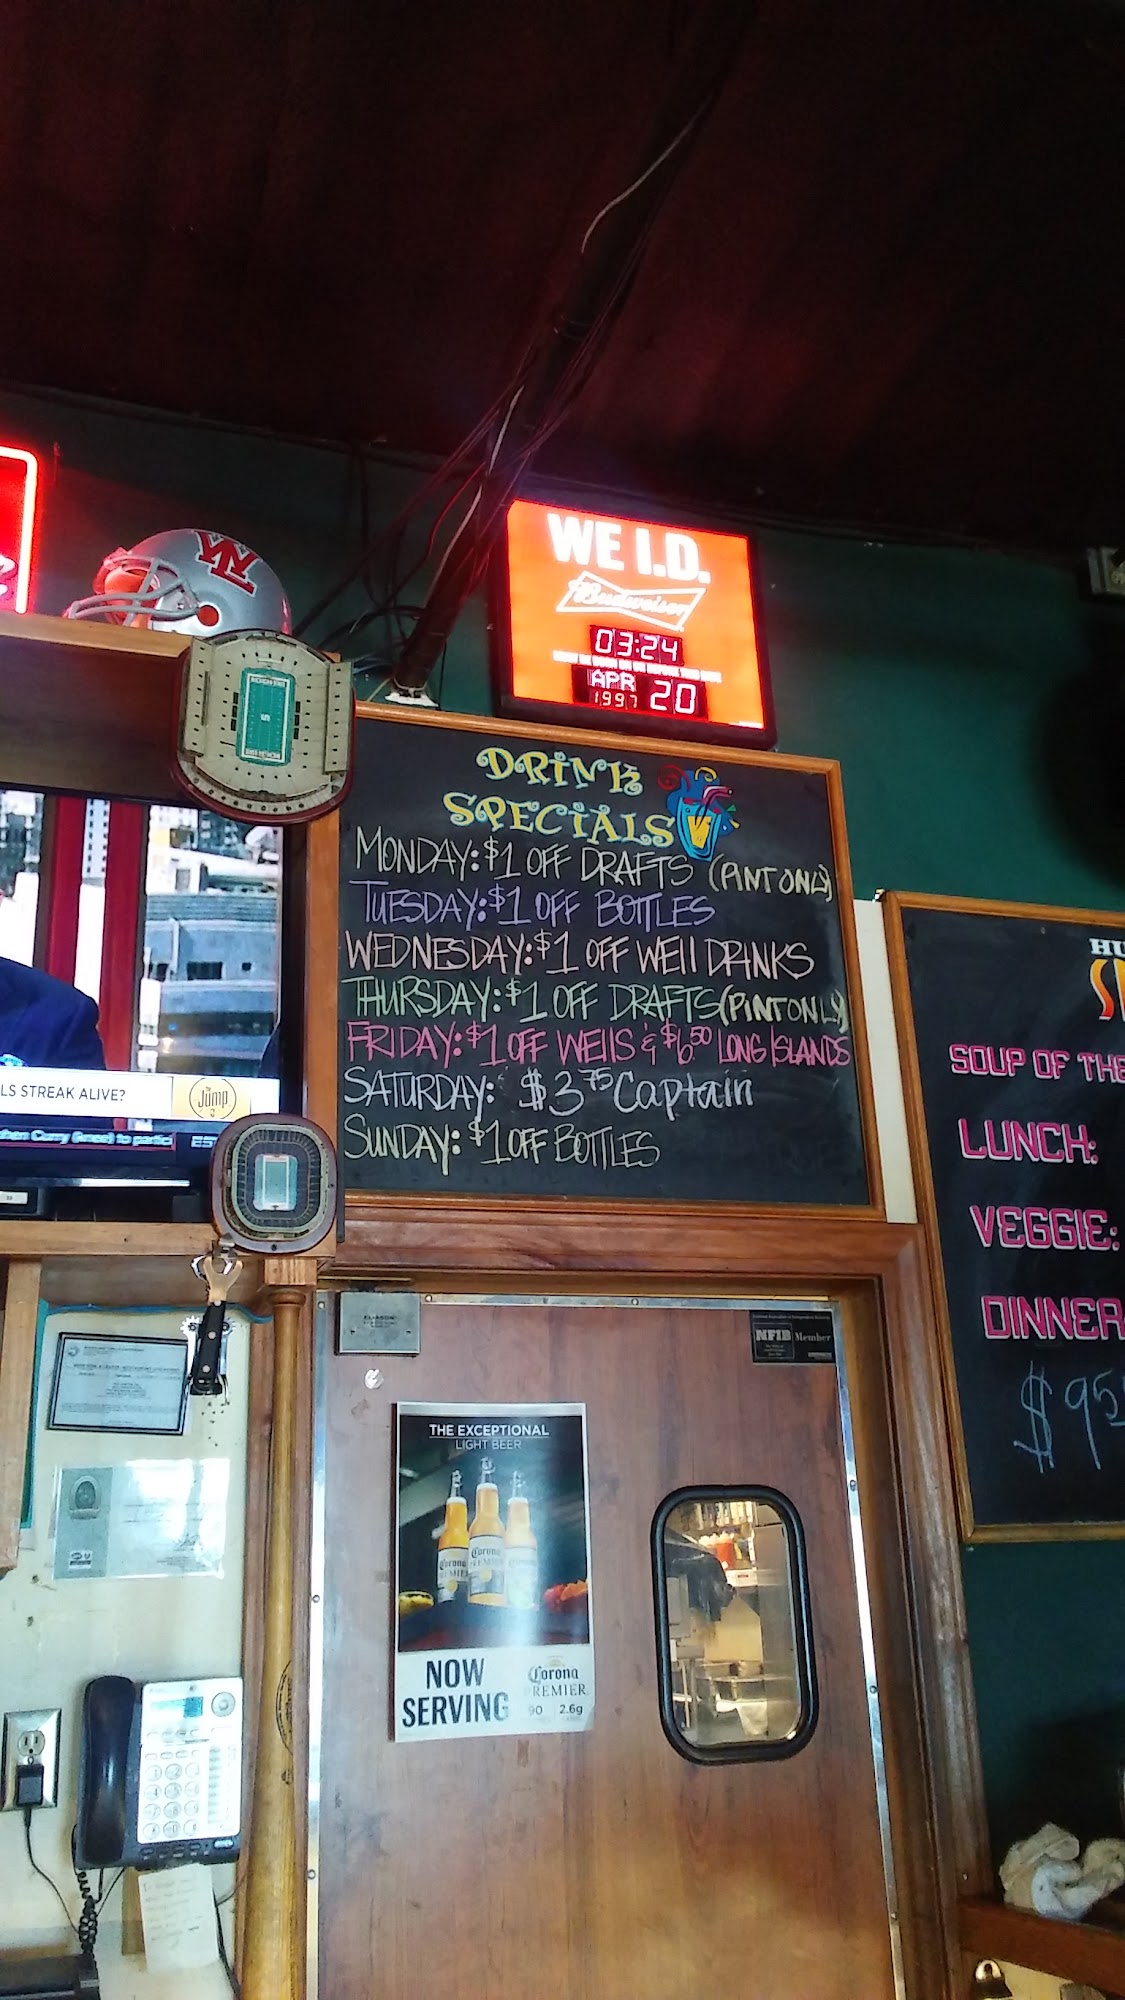 WE I.D.
Budweiser
03:24
MUST BE BORN ON OR BEFORE THIS DATE
APR 20
1997
WL
DRINK
SPECIALS
MONDAY: $1 OFF DRAFTS (PINT ONLY)
TUESDAY: $1 OFF BOTTLES
WEDNESDAY: $1 OFF WEll DRINKS
THURSDAY: $1 OFF DRAFTS (PINT ONLY)
FRIDAY: $1 OFF WEllS & $6.50 LONG ISLANDS
SATURDAY: $3 75 Captain
SUNDAY: $1 OFF BOTTLES
HU
SP
SOUP OF THE
LUNCH:
VEGGIE:
DINNER
$9 95
LS STREAK ALIVE?
The Jump
phen Curry (knee) to partici
ELIASON
NFIB Member
THE EXCEPTIONAL
LIGHT BEER
Corona
PREMIER
NOW
SERVING
Corona
PREMIER
90 2.6g